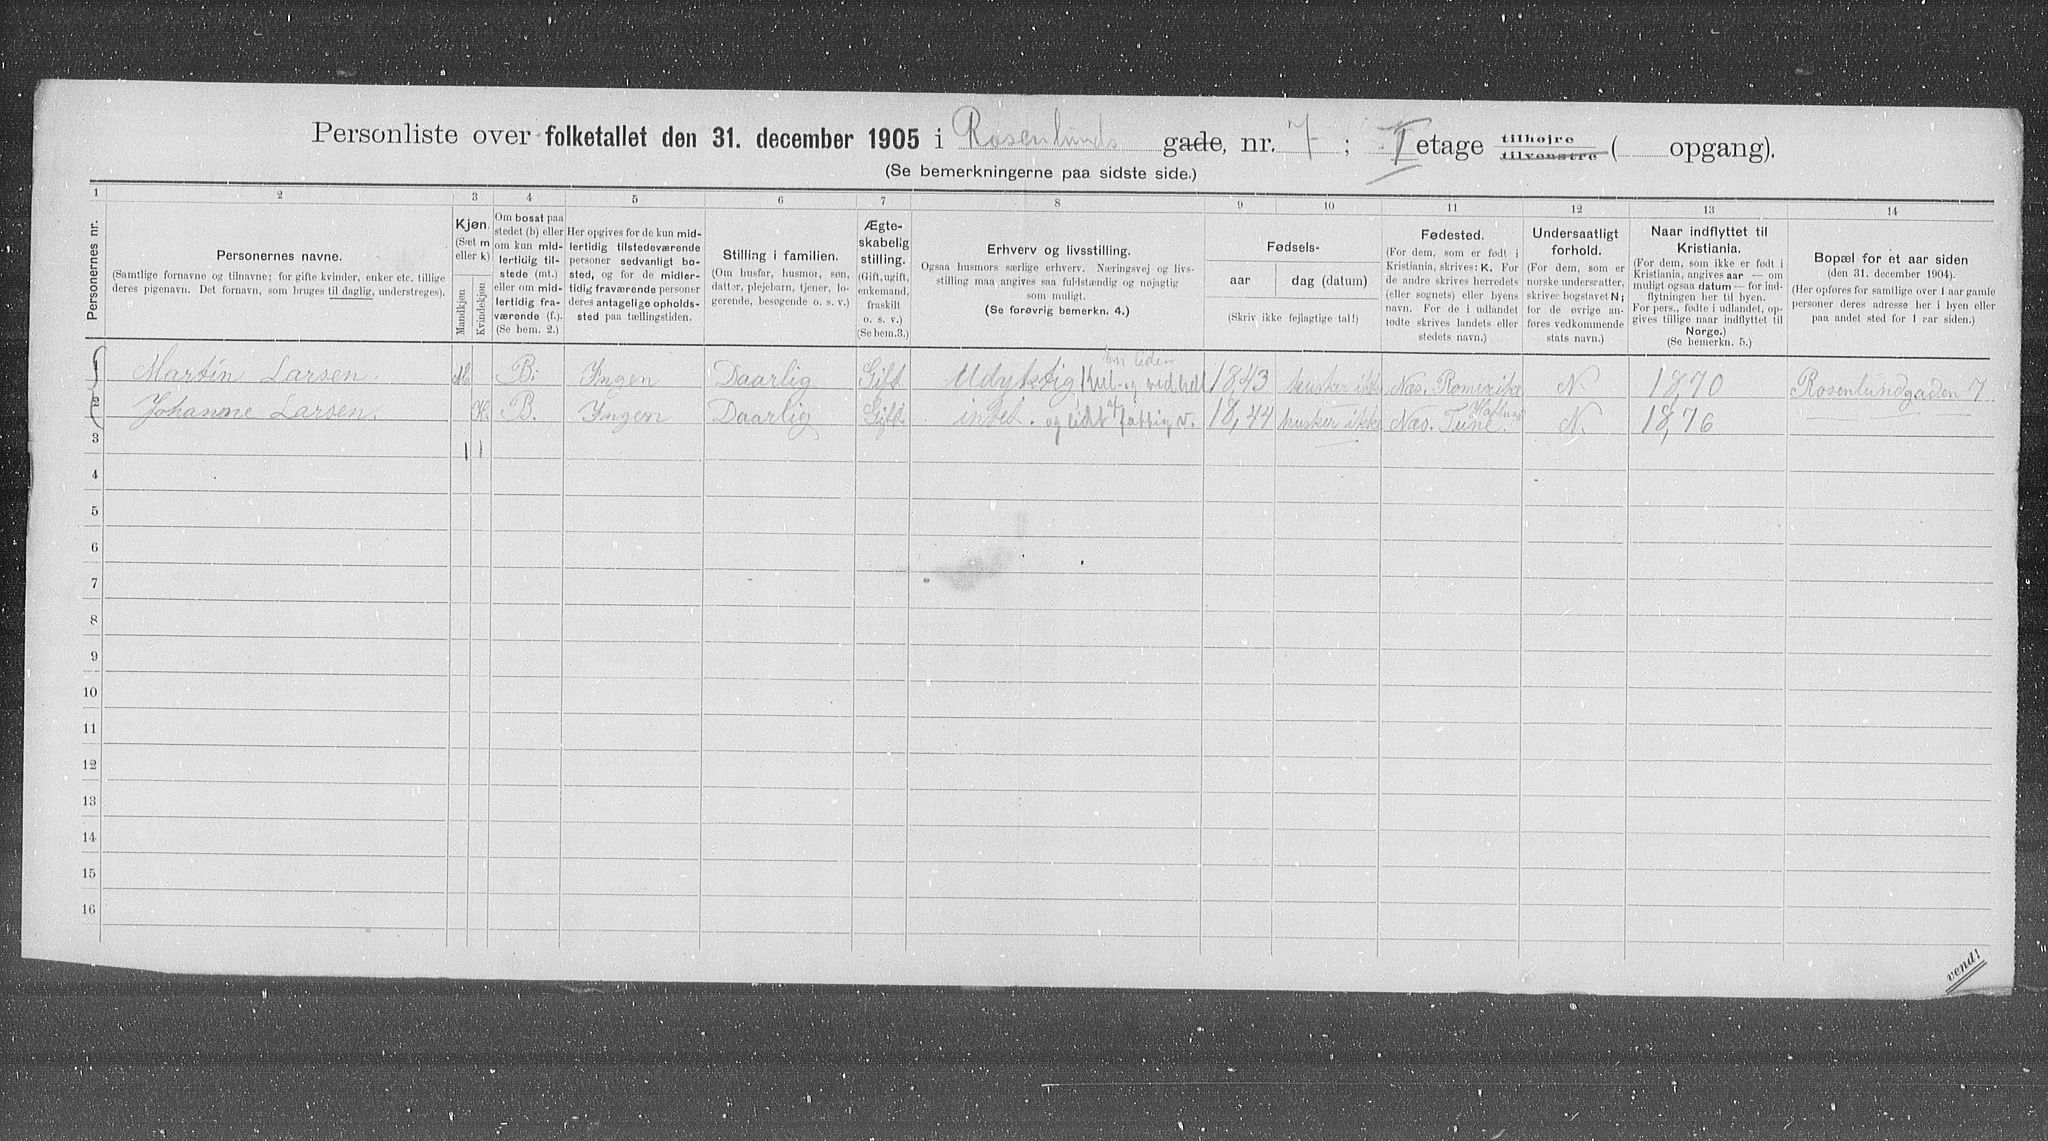 Personliste over folketallet den 31. december 1905 i Rosenlunds gade, nr. 7 ; I etage tilhøjre tilvenstre ( opgang).
(Se bemerkningerne paa sidste side.)
1 2 3 4 5 6 7 8 9 10 11 12 13 14
Personernes nr.
Personernes navne.
(Samtlige fornavne og tilnavne; for gifte kvinder, enker etc. tillige
deres pigenavn. Det fornavn, som bruges til daglig, understreges).
Kjøn.
(Sæt m
eller k)
Mandkjøn
Kvindekjøn
Om bosat paa
stedet (b) eller
om kun mid-
lertidig til-
stede (mt.)
eller om mid-
lertidig fra-
værende (f.).
(Se bem. 2.)
Her opgives for de kun mid-
lertidig tilstedeværende
personer sedvanligt bo-
sted, og for de midler-
tidig fraværende personer
deres antagelige opholds-
sted paa tællingstiden.
Stilling i familien.
(Om husfar, husmor, søn,
datter, plejebarn, tjener, lo-
gerende, besøgende o. s. v.)
Ægte-
skabelig
stilling.
(Gift, ugift,
enkemand,
fraskilt
o. s. v.)
(Se bem.3.)
Erhverv og livsstilling.
Ogsaa husmors særlige erhverv. Næringsvej og livs-
stilling maa angives saa fuldstændig og nøjagtig
som muligt.
(Se forøvrig bemerkn. 4.)
Fødsels-
aar
dag (datum)
(Skriv ikke fejlagtige tal!)
Fødested.
(For dem, som er født i
Kristiania, skrives: K. For
de andre skrives herredets
(eller sognets) eller byens
navn. For de i udlandet
fødte skrives landets eller
stedets navn.)
Undersaatligt
forhold.
(For dem, som er
norske undersaatter,
skriver bogstavet N;
for de øvrige an-
føres vedkommende
stats navn.)
Naar indflyttet til
Kristiania.
(For dem, som ikke er født i
Kristiania, angives aar — om
muligt ogsaa datum — for ind-
flytningen her til byen.
For pers., fødte i udlandet, op-
gives tillige naar indflyttet til
Norge.)
(Se bemerkn. 5.)
Bopæl for et aar siden
(den 31. december 1904).
(Her opføres for samtlige over 1 aar gamle
personer deres adresse her i byen eller
paa andet sted for 1 aar siden.)
En liden
1 Martin Larsen. M B. Ingen Daarlig Gift Udyktig Kul- og vedhdl 1843 husker ikke Næs. Romerike N 1870 Rosenlundgaden 7
2 Johanne Larsen. K. B. Ingen Daarlig Gift intet. og lidt af fattigv. 1844 husker ikke Næs. Tune. N. 1876
3
4
5
6
7
8
9
10
11
12
13
14
15
16
vend!